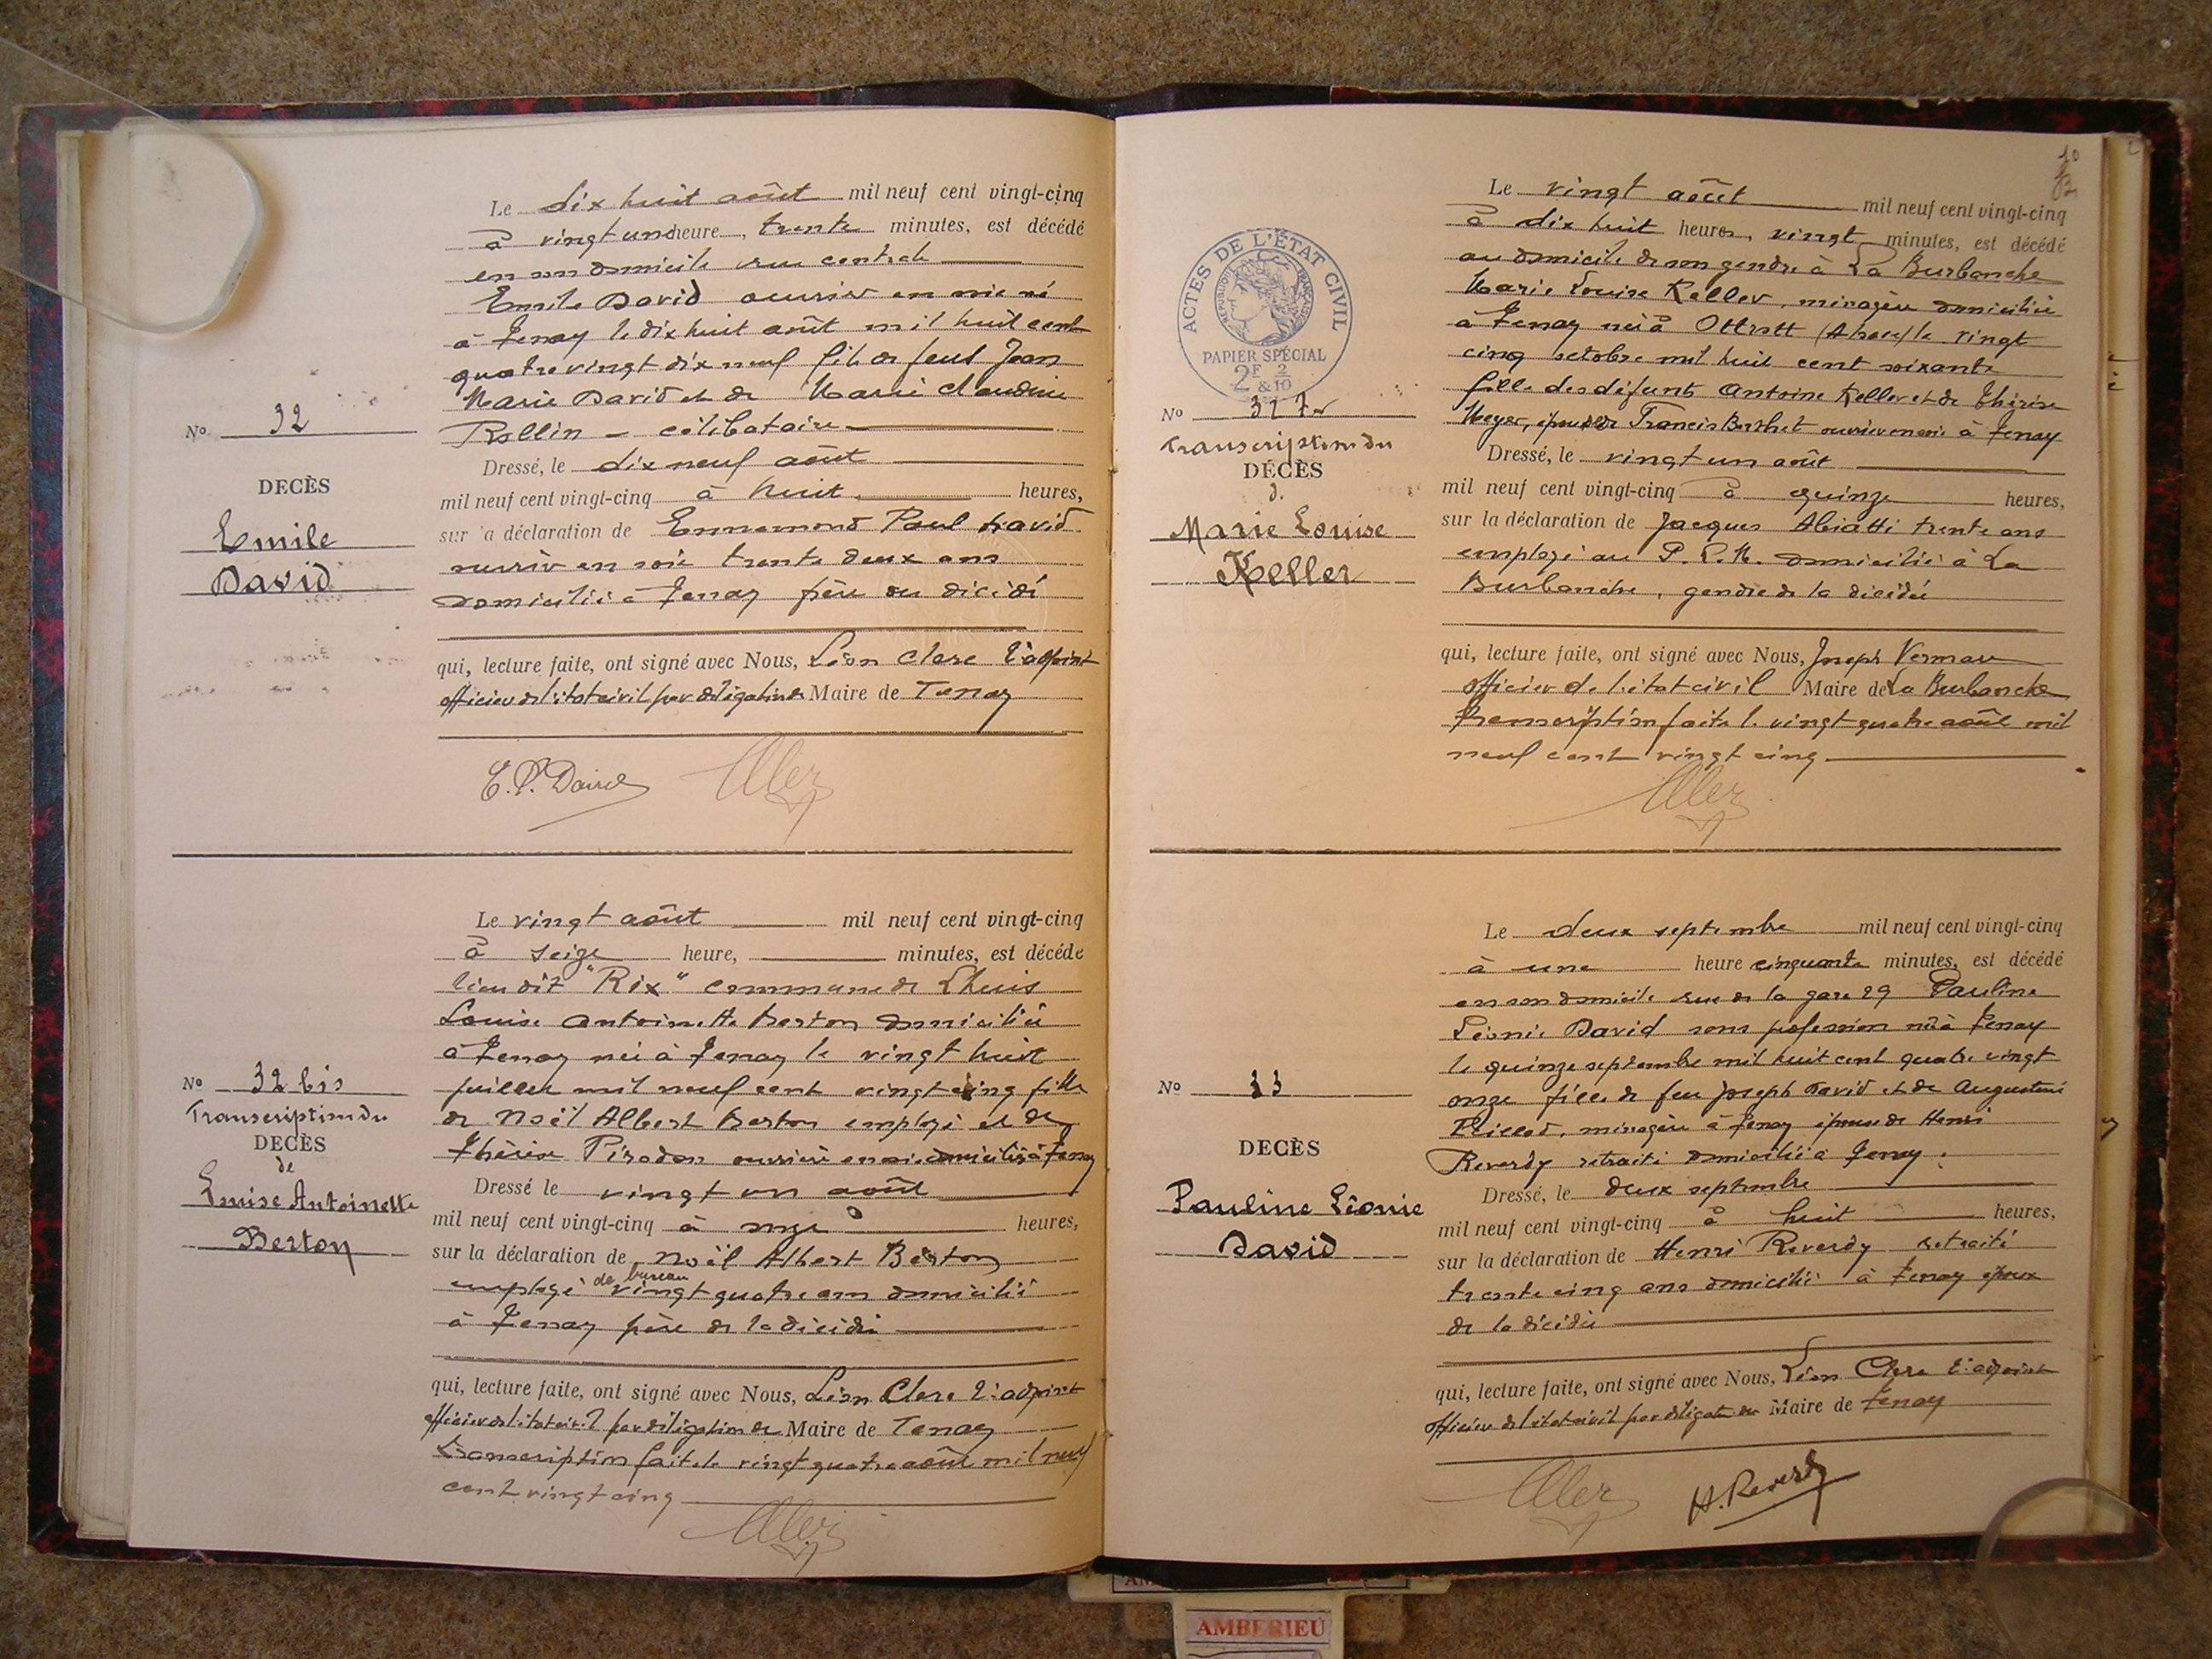 Le dix huit août mil neuf cent vingt-cinq
à vingt une heure, trente minutes, est décédé
en son domicile rue centrale
Emile David ouvrier en soie né
à Tenay le dix huit août mil huit cent
quatre vingt dix neuf fils de feu Jean
Marie David et de Marie Claudine
Rollin - célibataire
No 32
DECÈS
Emile
David
Dressé, le dix neuf août
mil neuf cent vingt-cinq à huit heures,
sur la déclaration de Ennemond Paul David
ouvrier en soie trente deux ans
domicilié à Tenay frère du décédé
qui, lecture faite, ont signé avec Nous, Léon Clerc l'adjoint
officier de l'état civil par délégation du Maire de Tenay
E. P. David
Le vingt août mil neuf cent vingt-cinq
à seize heure, minutes, est décédé
lieu dit "Rix" commune de Lhuis
Louise Antoinette Berton domiciliée
à Tenay née à Tenay le vingt huit
juillet mil neuf cent vingt cinq fille
de Noël Albert Berton employé et de
Thérèse Pirodon ouvrière en soie domiciliés à Tenay
No 32 bis
Transcription du
DECÈS
de
Louise Antoinette
Berton
Dressé le vingt un août
mil neuf cent vingt-cinq à onze heures,
sur la déclaration de Noël Albert Berton
employé de bureau vingt quatre ans domicilié
à Tenay père de la décédée
qui, lecture faite, ont signé avec Nous, Léon Clerc l'adjoint
officier de l'état civil par délégation du Maire de Tenay
Transcription faite le vingt quatre août mil neuf
cent vingt cinq
10
ACTES DE L'ÉTAT CIVIL
RÉPUBLIQUE FRANÇAISE
PAPIER SPÉCIAL
2F 2/10
&
Le vingt août mil neuf cent vingt-cinq
à dix huit heures, vingt minutes, est décédé
au domicile de son gendre à La Burbanche
Marie Louise Keller, ménagère domiciliée
à Tenay née à Ottrott (Alsace) le vingt
cinq octobre mil huit cent soixante
fille des défunts Antoine Keller et de Thérèse
Meyer, épouse de Francis Berthet ouvrier en soie à Tenay
No 32
Transcription du
DÉCÈS
d.
Marie Louise
Keller
Dressé, le vingt un août
mil neuf cent vingt-cinq à quinze heures,
sur la déclaration de Jacques Abiatti trente ans
employé au P. L. M. domicilié à La
Burbanche, gendre de la décédée
qui, lecture faite, ont signé avec Nous, Joseph
officier de l'état civil Maire de La Burbanche
transcription faite le vingt quatre août mil
neuf cent vingt cinq
Le deux septembre mil neuf cent vingt-cinq
à une heure cinquante minutes, est décédé
en son domicile rue de la gare 29 Pauline
Léonie David sans profession née à Tenay
le quinze septembre mil huit cent quatre vingt
onze fille de feu Joseph David et de Augustine
ménagère à Tenay épouse de Henri
Reverdy retraité domicilié à Tenay.
No 33
DECÈS
Pauline Léonie
David
Dressé, le deux septembre
mil neuf cent vingt-cinq à huit heures,
sur la déclaration de Henri Reverdy retraité
trente cinq ans domicilié à Tenay époux
de la décédée
qui, lecture faite, ont signé avec Nous, Léon Clerc l'adjoint
officier de l'état civil par délégation du Maire de Tenay
H. Reverdy
AMBERIEU